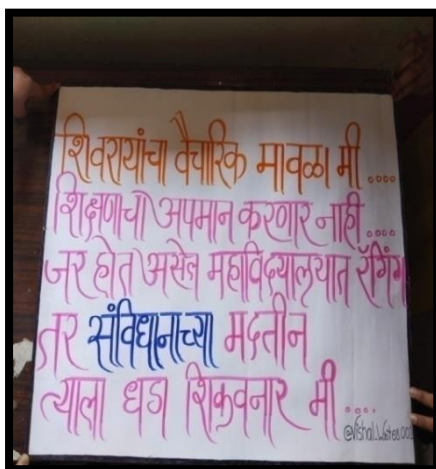 शिवरायांचा वैचारिक मावळा मी ....
शिक्षणाचा अपमान करणार नाही ....
जर होत असेल महाविद्यालयात रॅगिंग
तर संविधानाच्या मदतीन
त्याला धडा शिकवनार मी ....